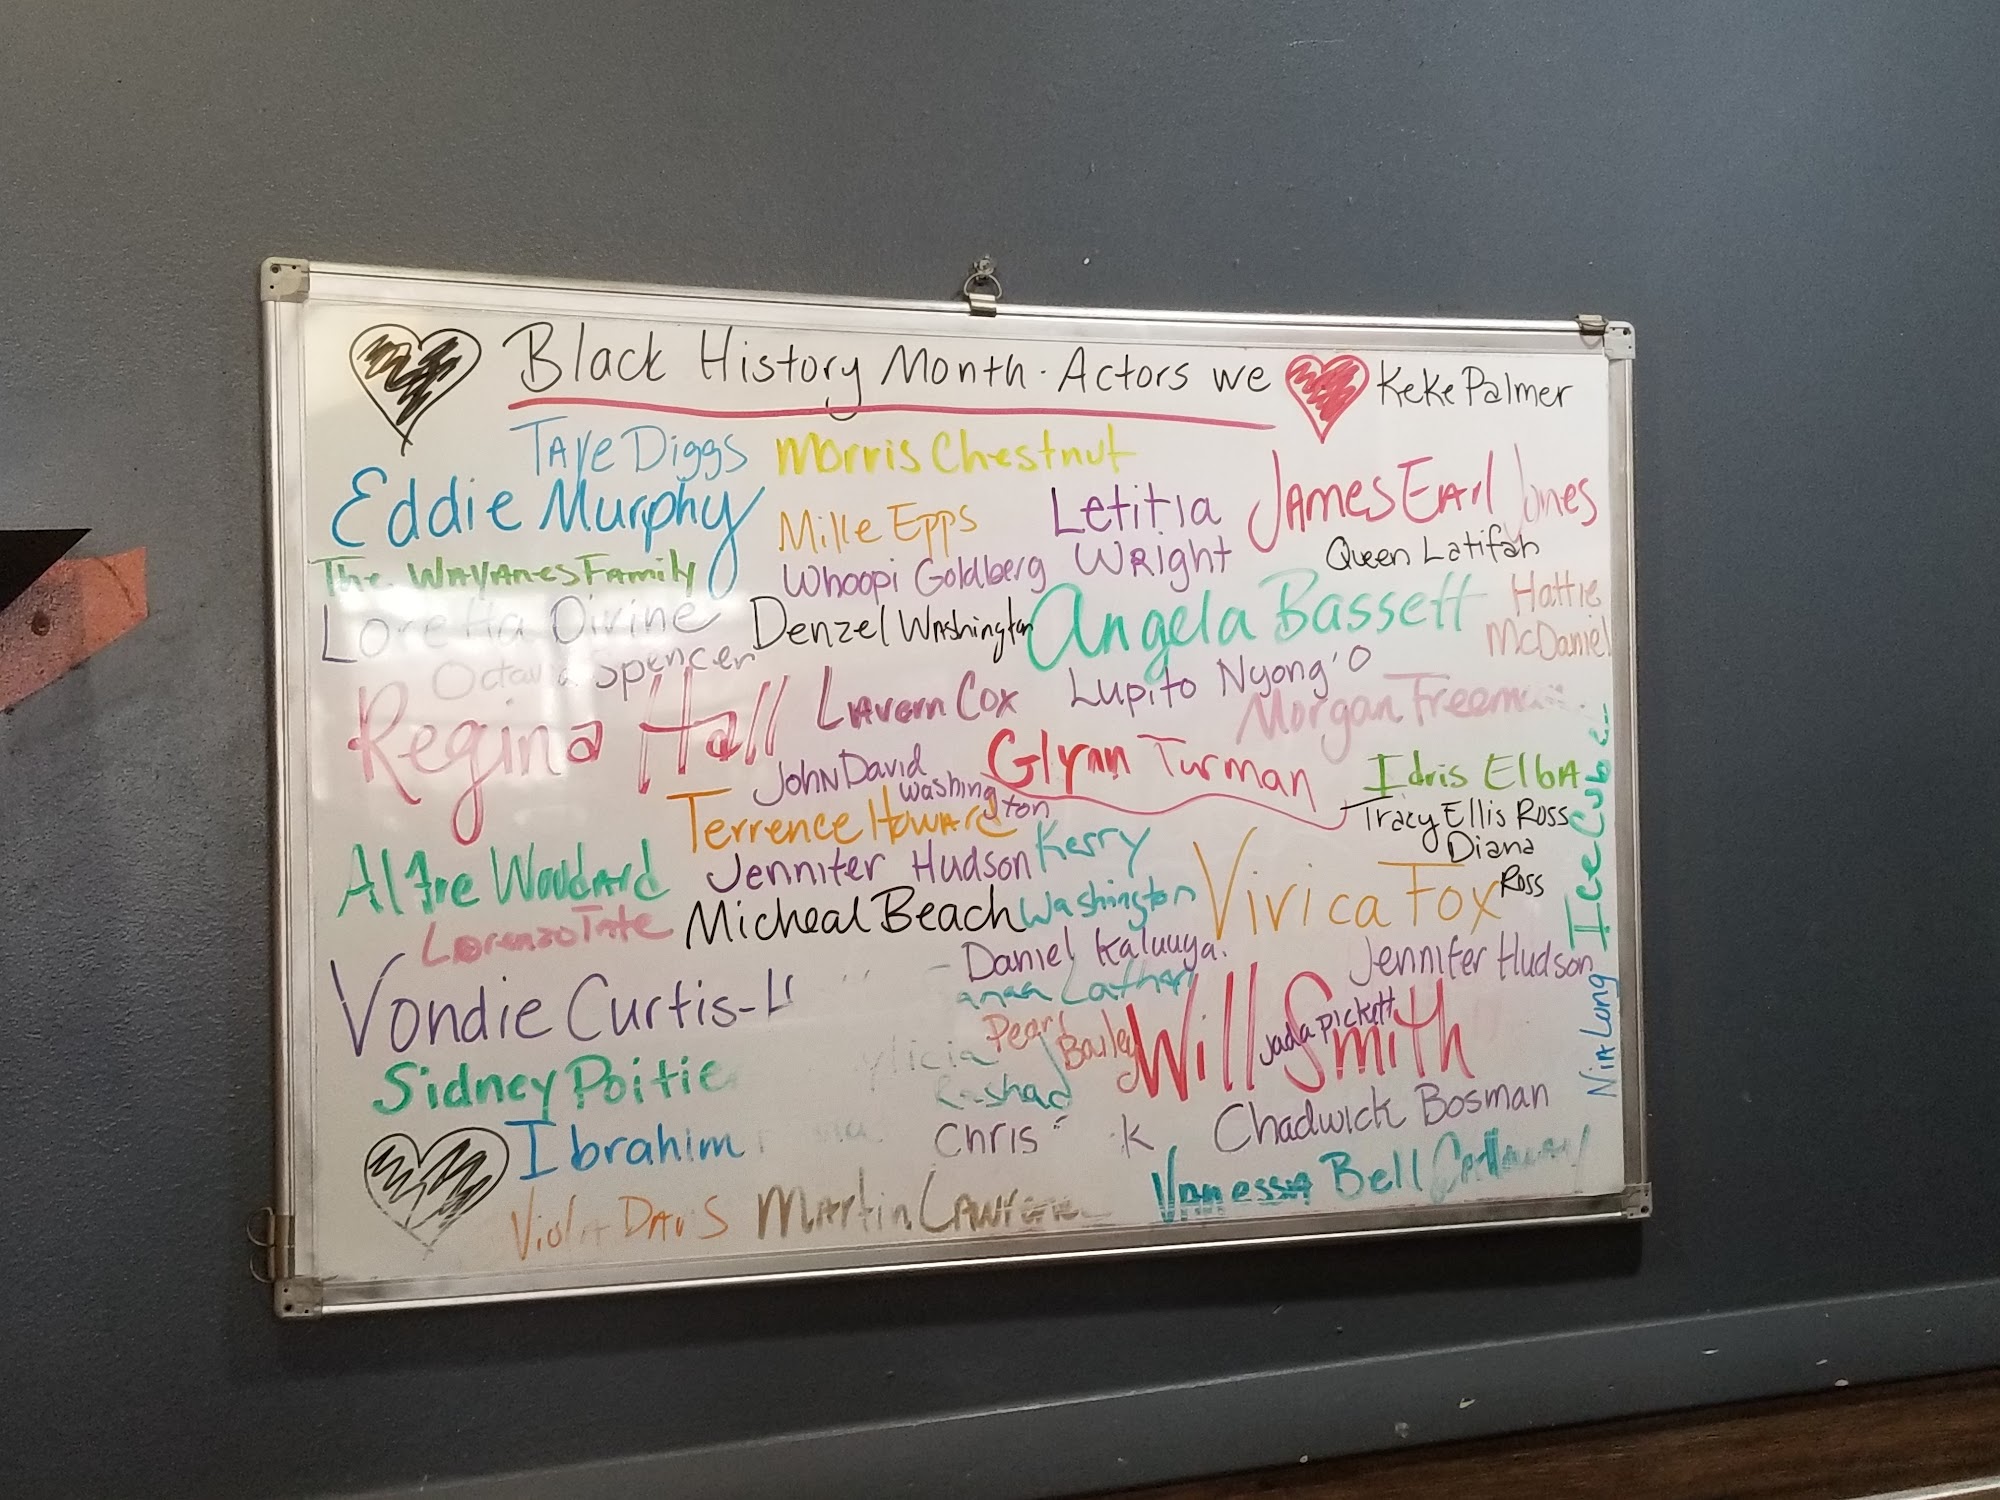 Black History Month. Actors we
KeKe Palmer
Taye Diggs
Morris Chestnut
Eddie Murphy
Mike Epps
Letitia
Wright
James Earl Jones
Queen Latifah
The Wayanes Family
Whoopi Goldberg
Hattie
McDaniel
Loretta Divine
Denzel Washington
Angela Bassett
Octavia Spencer
Lavern Cox
Lupito Nyong'O
Regina Hall
Morgan Freeman
John David
Washington
Glynn Turman
Idris Elba
Ice Cube
Terrence Howard
Tracy Ellis Ross
Diana
Ross
Alfre Woodard
Jennifer Hudson
Kerry
Washington
Vivica Fox
Lorenzo Tate
Micheal Beach
Daniel Kaluuya.
Jennifer Hudson
Nia Long
Vondie Curtis-
anaa Lathan
Pearl
Bailey
Will Smith
Jada pickett
Sidney Poitie
ylicia
Rashad
Chadwick Bosman
Ibrahim
Chris
Vanessa Bell Calloway
Viola Davis
Martin Lawrence